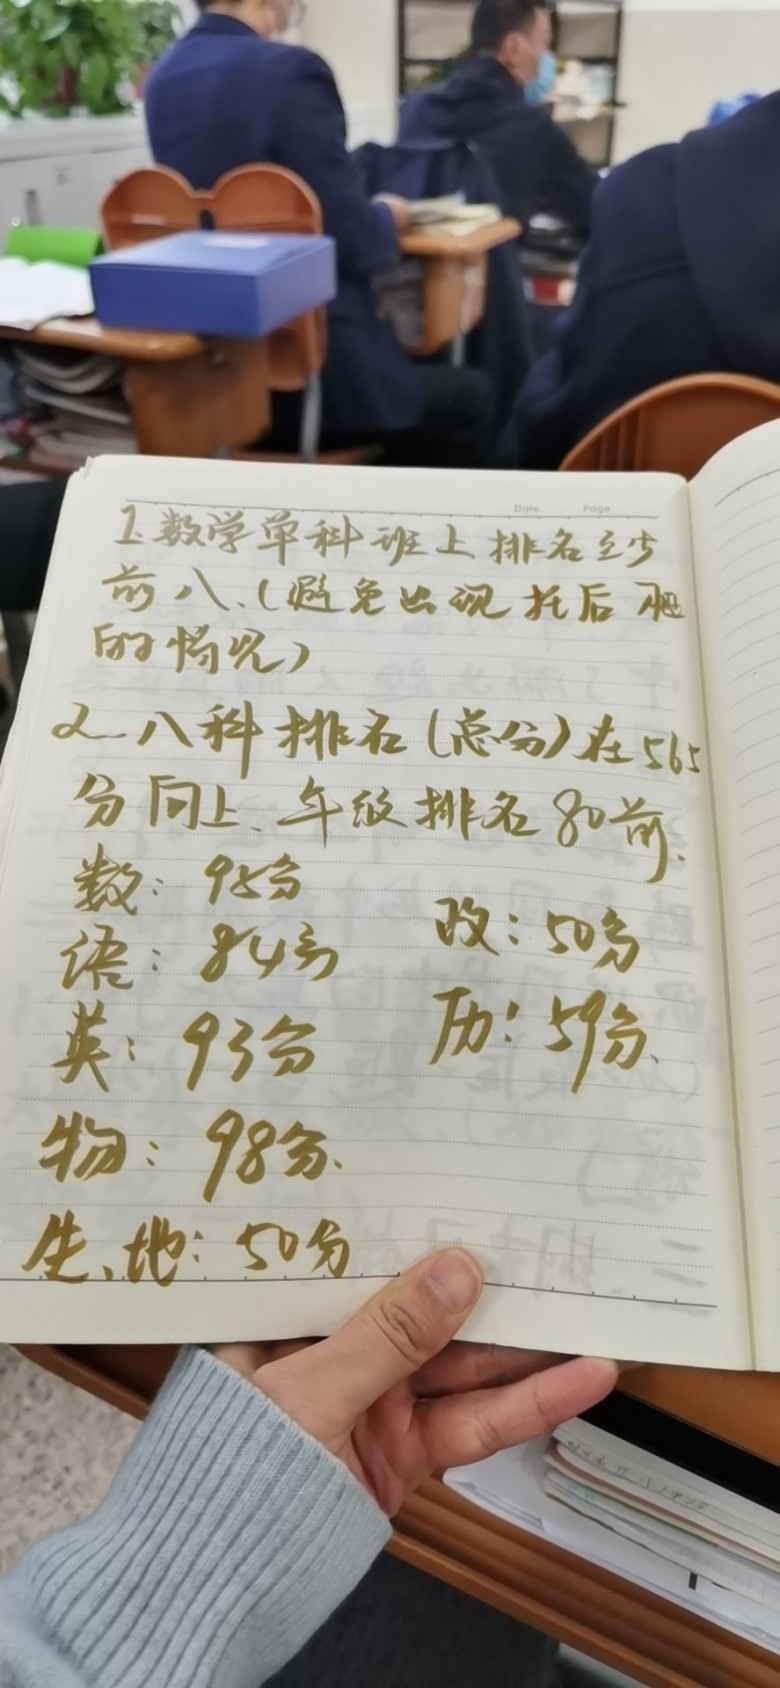 Date. Page.
1.数学单科班上排名至少
前八.(避免出现托后腿
的情况)
2.八科排名(总分)在565
分向上、年级排名80前.
数：95分
语：84分
英：93分
物：98分.
生、地：50分
政：50分
历：59分、